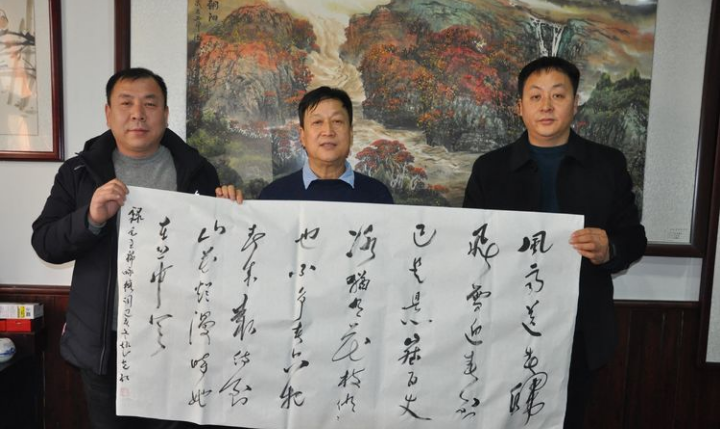 風雨送春歸
飛雪迎春到
已是悬崖百丈
冰猶有花枝俏
也不争春只把
春来報待到
山花烂漫時她
在丛中笑
錄毛主席咏梅詞